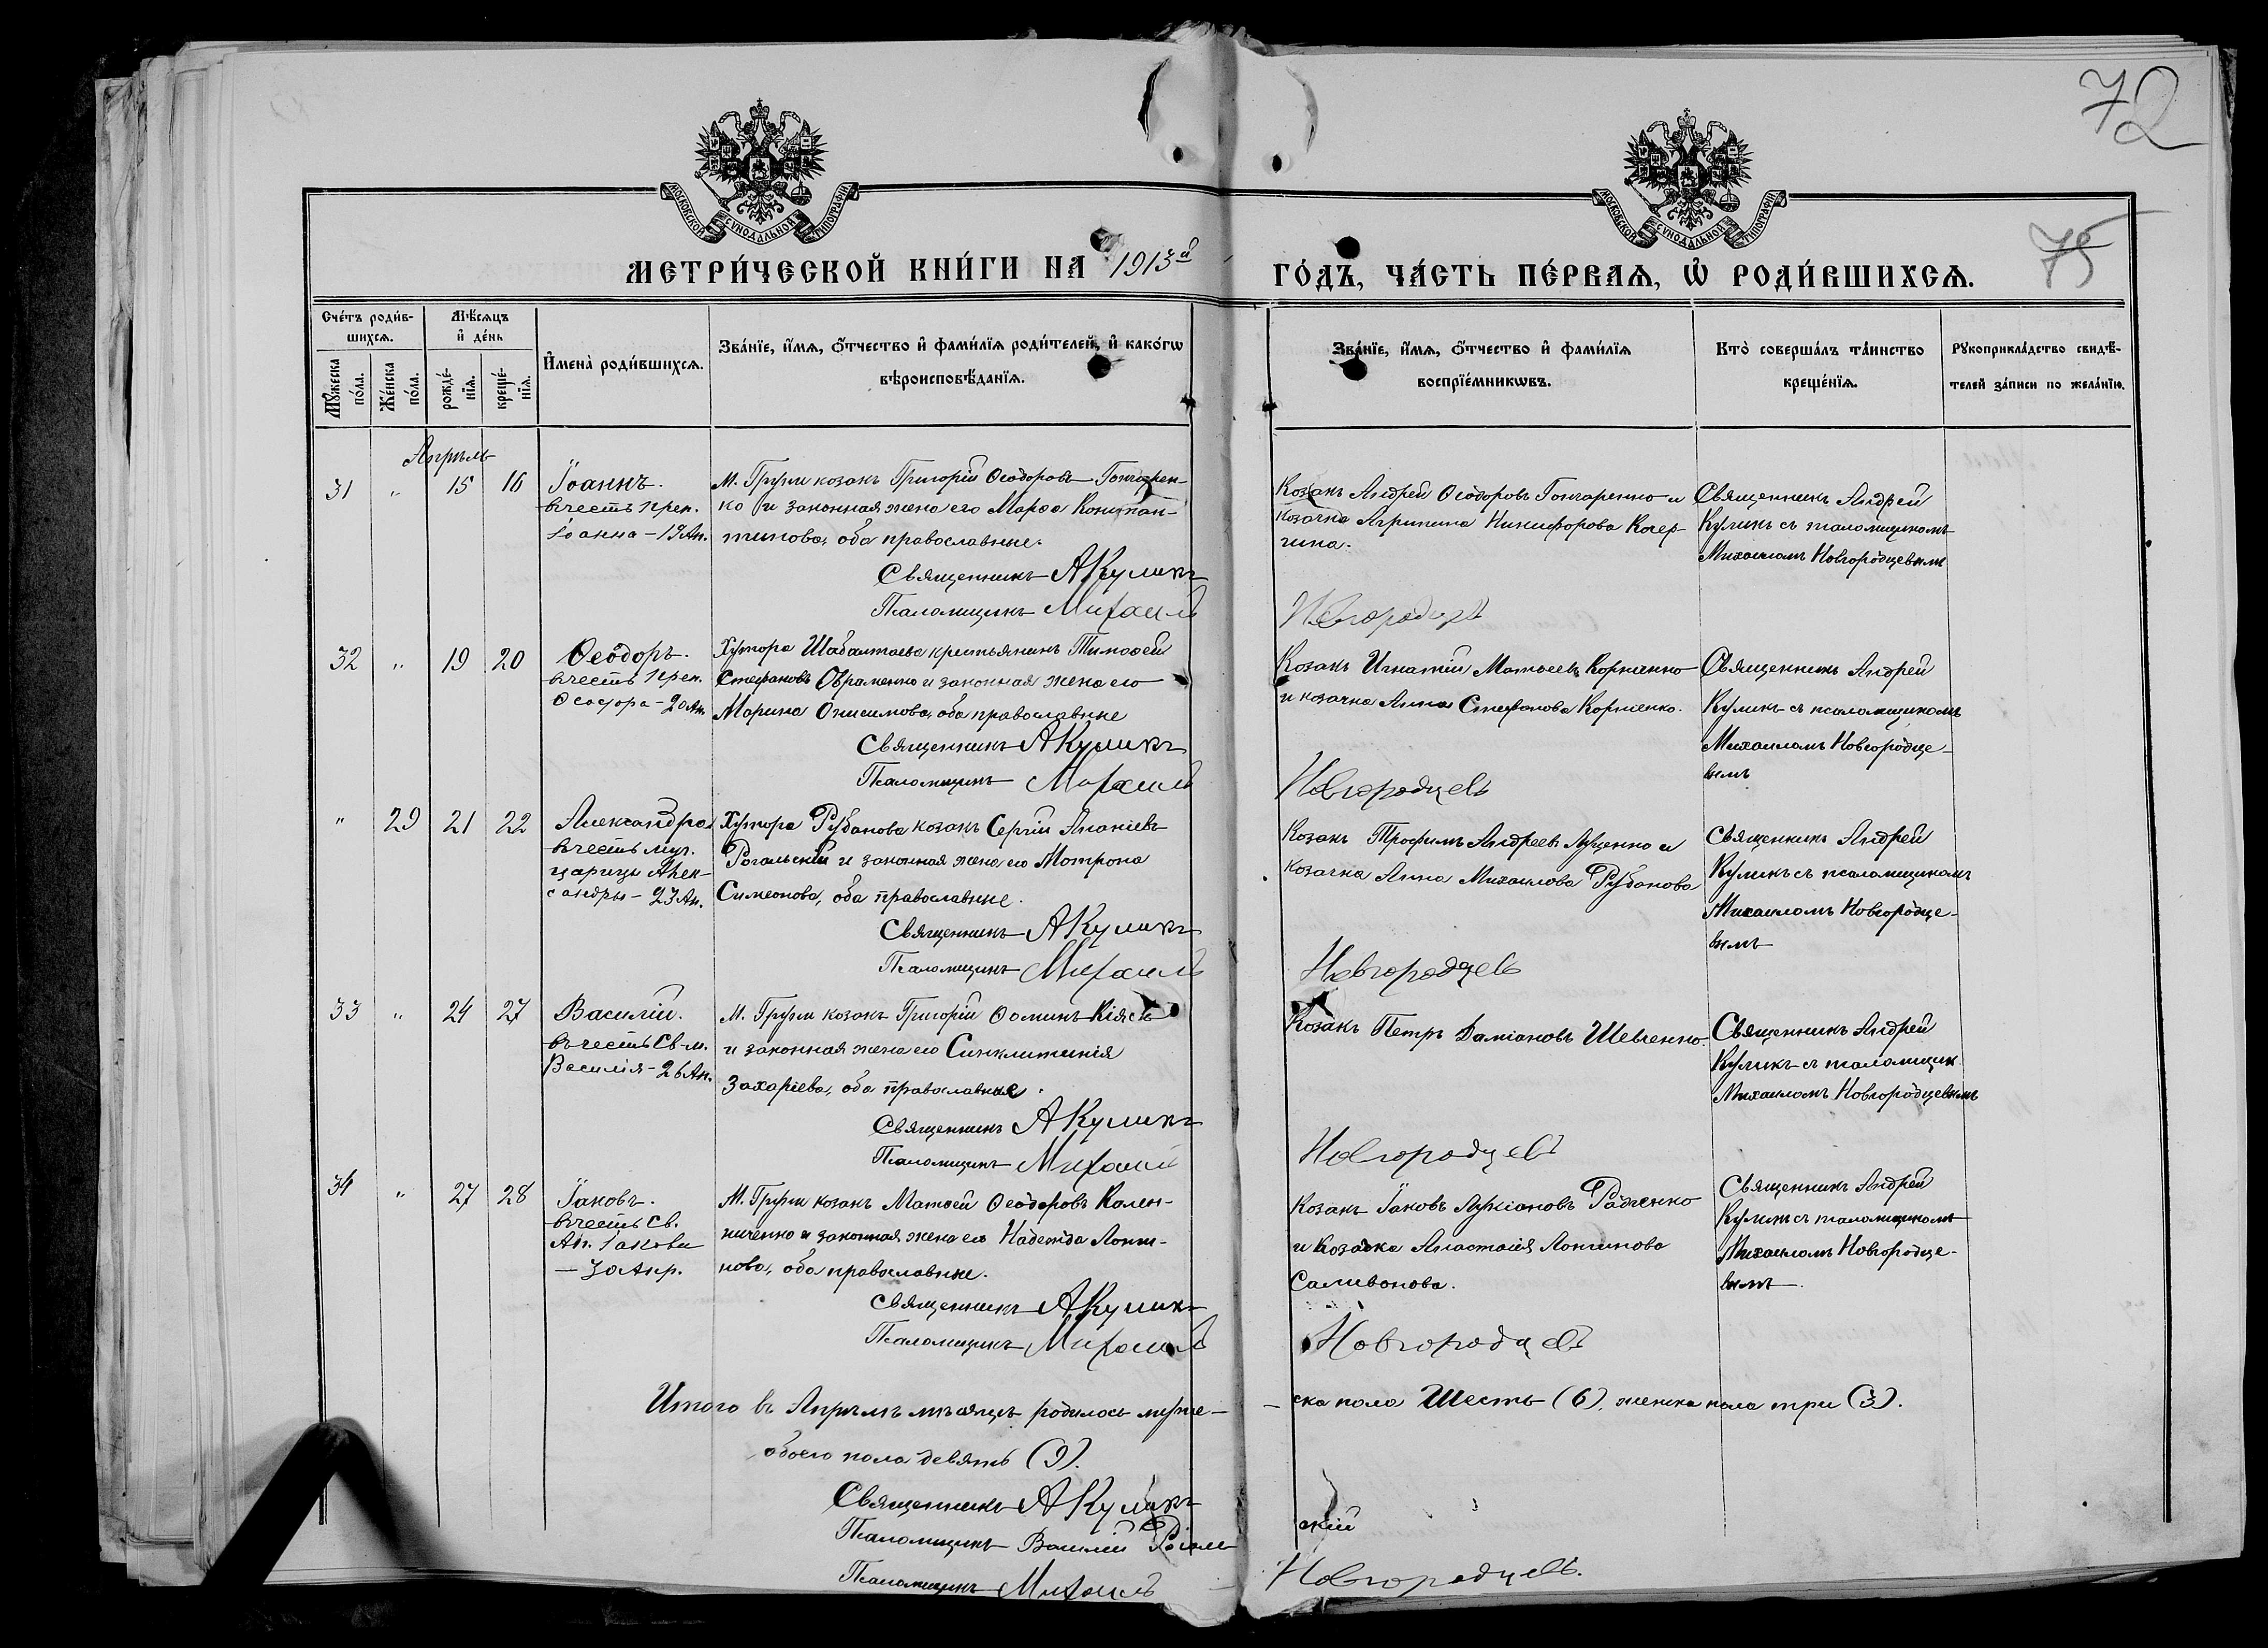 72
75
МОСКОВСКОЙ СѴНОДАЛЬНОЙ ТИПОГРАФІИ
МОСКОВСКОЙ СѴНОДАЛЬНОЙ ТИПОГРАФІИ
МЕТРИ́ЧЕСКОЙ КНИ́ГИ НА 1913й ГО́ДЪ, ЧА́СТЬ ПЕ́РВАѦ, Ѡ҆ РОДИ́ВШИХСѦ.
Сче́тъ роди́в-
шихсѧ.
Мꙋ́жеска
по́ла.
Же́нска
по́ла.
Мѣ́сѧцъ
и҆ де́нь
рожде́-
нїѧ.
креще́-
нїѧ.
И҆мена̀ роди́вшихсѧ.
Зва́нїе, и҆́мѧ, ѻ҆́тчество и҆ фами́лїѧ роди́телей, и҆ како́гѡ
вѣроисповѣ́данїѧ.
Зва́нїе, и҆́мѧ, ѻ҆́тчество и҆ фами́лїѧ
воспрїе́мникѡвъ.
Кто̀ соверша́лъ та́инство
креще́нїѧ.
Рꙋкоприкла́дство свидѣ́-
телей за́писи по жела́нїю.
Апрѣль
31 " 15 16
Іоаннъ.
въ честь преп.
Іоанна -
М. Груни козакъ Григорій Ѳеодоровъ Гончарен-
ко и законная жена его Марѳа Констан-
тинова, оба православные.
Священникъ АКуликъ
Псаломщикъ Михаилъ Новгородцевъ
Козакъ Андрей Ѳеодоровъ Гончаренко и
козачка Агрипина Никифорова Кочер-
гина.
Священникъ Андрей
Куликъ съ псаломщикомъ
Михаиломъ Новгородцевымъ
32 " 19 20
Ѳеодоръ.
въ честь преп.
Ѳеодора - 20 Ап.
Хутора Шабалтаева крестьянинъ Тимоѳей
Стефановъ Авраменко и законная жена его
Марина Онисимова, оба православные
Священникъ АКуликъ
Псаломщикъ Михаилъ Новгородцевъ
Козакъ Игнатій Матѳеевъ Корніенко
и козачка Анна Стефанова Корніенко.
Священникъ Андрей
Куликъ съ псаломщикомъ
Михаиломъ Новгородце-
вымъ
" 29 21 22
Александра
въ честь муч.
царицы Алек-
сандры - 23 Ап.
Хутора Рубанова козакъ Сергій Ананіевъ
Рогальскій и законная жена его Мотрона
Симеонова, оба православные.
Священникъ АКуликъ
Псаломщикъ Михаилъ Новгородцевъ
Козакъ Трофимъ Андреевъ Луценко и
козачка Анна Михаилова Рубанова
Священникъ Андрей
Куликъ съ псаломщикомъ
Михаиломъ Новгородце-
вымъ
33 " 24 27
Василій.
въ честь Св-м.
Василія - 26 Ап.
М. Груни козакъ Григорій Ѳоминъ Кіясь
и законная жена его Синклитикія
Захаріева, оба православные.
Священникъ АКуликъ
Псаломщикъ Михаилъ Новгородцевъ
Козакъ Петръ Даміановъ Шевченко.
Священникъ Андрей
Куликъ съ псаломщик
Михаиломъ Новгородцевымъ
34 " 27 28
Іаковъ.
въ честь Св.
Ап. Іакова
- 30 Апр.
М. Груни козакъ Матѳей Ѳеодоровъ Кален-
ниченко и законная жена его Надежда Логи-
нова, оба православные.
Священникъ АКуликъ
Псаломщикъ Михаилъ Новгородцевъ
Козакъ Іаковъ Лукіановъ Радченко
и козачка Анастасія Лонгинова
Саливонова.
Священникъ Андрей
Куликъ съ псаломщикомъ
Михаиломъ Новгородце-
вымъ
Итого въ Апрѣлѣ мѣсяцѣ родилось муже-
ска пола Шесть (6), женска пола три (3).
обоего пола девять (9).
Священникъ АКуликъ
Псаломщикъ Василій Рогальскій
Псаломщикъ Михаилъ Новгородцевъ.